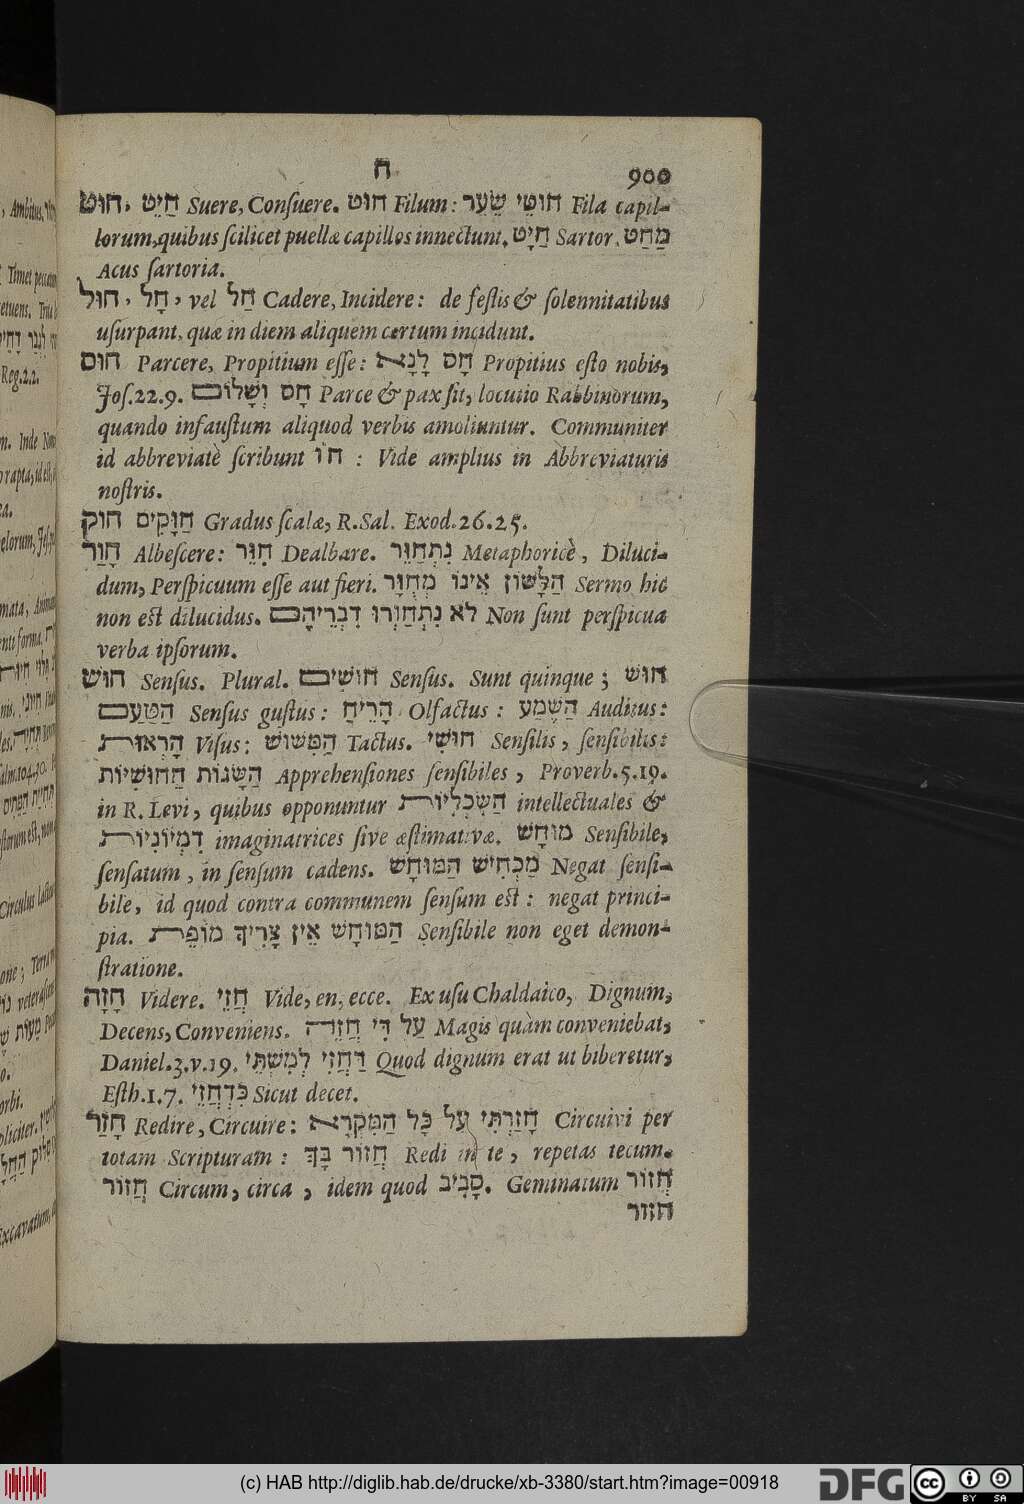 ח 900
חוּט, חַיֵּט Suere, Conſuere. חוּט Filum: חוּטֵי שֵׂעָר Fila capil-
lorum, quibus ſcilicet puellæ capillos innectunt. חַיָּט Sartor. מַחַט
Acus ſartoria.
חוּל, חָל, vel חַל Cadere, Incidere: de feſtis & ſolennitatibus
uſurpant, quæ in diem aliquem certum incidunt.
חוּס Parcere, Propitium eſſe: חָס לָנָא Propitius eſto nobis,
Joſ.22.9. חָס וְשָׁלוֹם Parce & pax ſit, locutio Rabbinorum,
quando infauſtum aliquod verbis amoliuntur. Communiter
id abbreviatè ſcribunt חו : Vide amplius in Abbreviaturis
noſtris.
חוק חַוָּקִים Gradus ſcalæ, R.Sal. Exod.26.25.
חָוַר Albeſcere: חִוֵּר Dealbare. נִתְחַוֵּר Metaphoricè, Diluci-
dum, Perſpicuum eſſe aut fieri. הַלָּשׁוֹן אֵינוֹ מְחֻוָּר Sermo hic
non eſt dilucidus. לֹא נִתְחַוְּרוּ דִבְרֵיהֶם Non ſunt perſpicua
verba ipſorum.
חוּשׁ Senſus. Plural. חוּשִׁים Senſus. Sunt quinque; חוּשׁ
הַטַּעַם Senſus guſtus: הָרֵיחַ Olfactus: הַשֶּׁמַע Auditus:
הָרְאוּת Viſus: הַמִּשּׁוּשׁ Tactus. חוּשִׁי Senſilis, ſenſibilis:
הַשָּׂגוֹת הַחוּשִׁיּוֹת Apprehenſiones ſenſibiles, Proverb.5.19.
in R. Levi, quibus opponuntur הַשִּׂכְלִיּוֹת intellectuales &
דִמְיוֹנִיּוֹת imaginatrices ſive æſtimativæ. מוּחָשׁ Senſibile,
ſenſatum, in ſenſum cadens. מַכְחִישׁ הַמּוּחָשׁ Negat ſenſi-
bile, id quod contra communem ſenſum eſt: negat princi-
pia. הַמּוּחָשׁ אֵין צָרִיךְ מוֹפֵת Senſibile non eget demon-
ſtratione.
חָזָה Videre. חֲזֵי Vide, en, ecce. Ex uſu Chaldaico, Dignum,
Decens, Conveniens. עַל דִּי חֲזֵה Magis quàm conveniebat,
Daniel.3.v.19. דַּחֲזִי לְמִשְׁתֵּי Quod dignum erat ut biberetur,
Eſth.1.7. כִּדְחֲזֵי Sicut decet.
חָזַר Redire, Circuire: חָזַרְתִּי עַל כָּל הַמִּקְרָא Circuivi per
totam Scripturam: חֲזוֹר בָּךְ Redi in te, repetas tecum.
חֲזוֹר Circum, circa, idem quod סָבִיב. Geminatum חֲזוֹר
חזור
(c) HAB http://diglib.hab.de/drucke/xb-3380/start.htm?image=00918
DFG cc BY SA